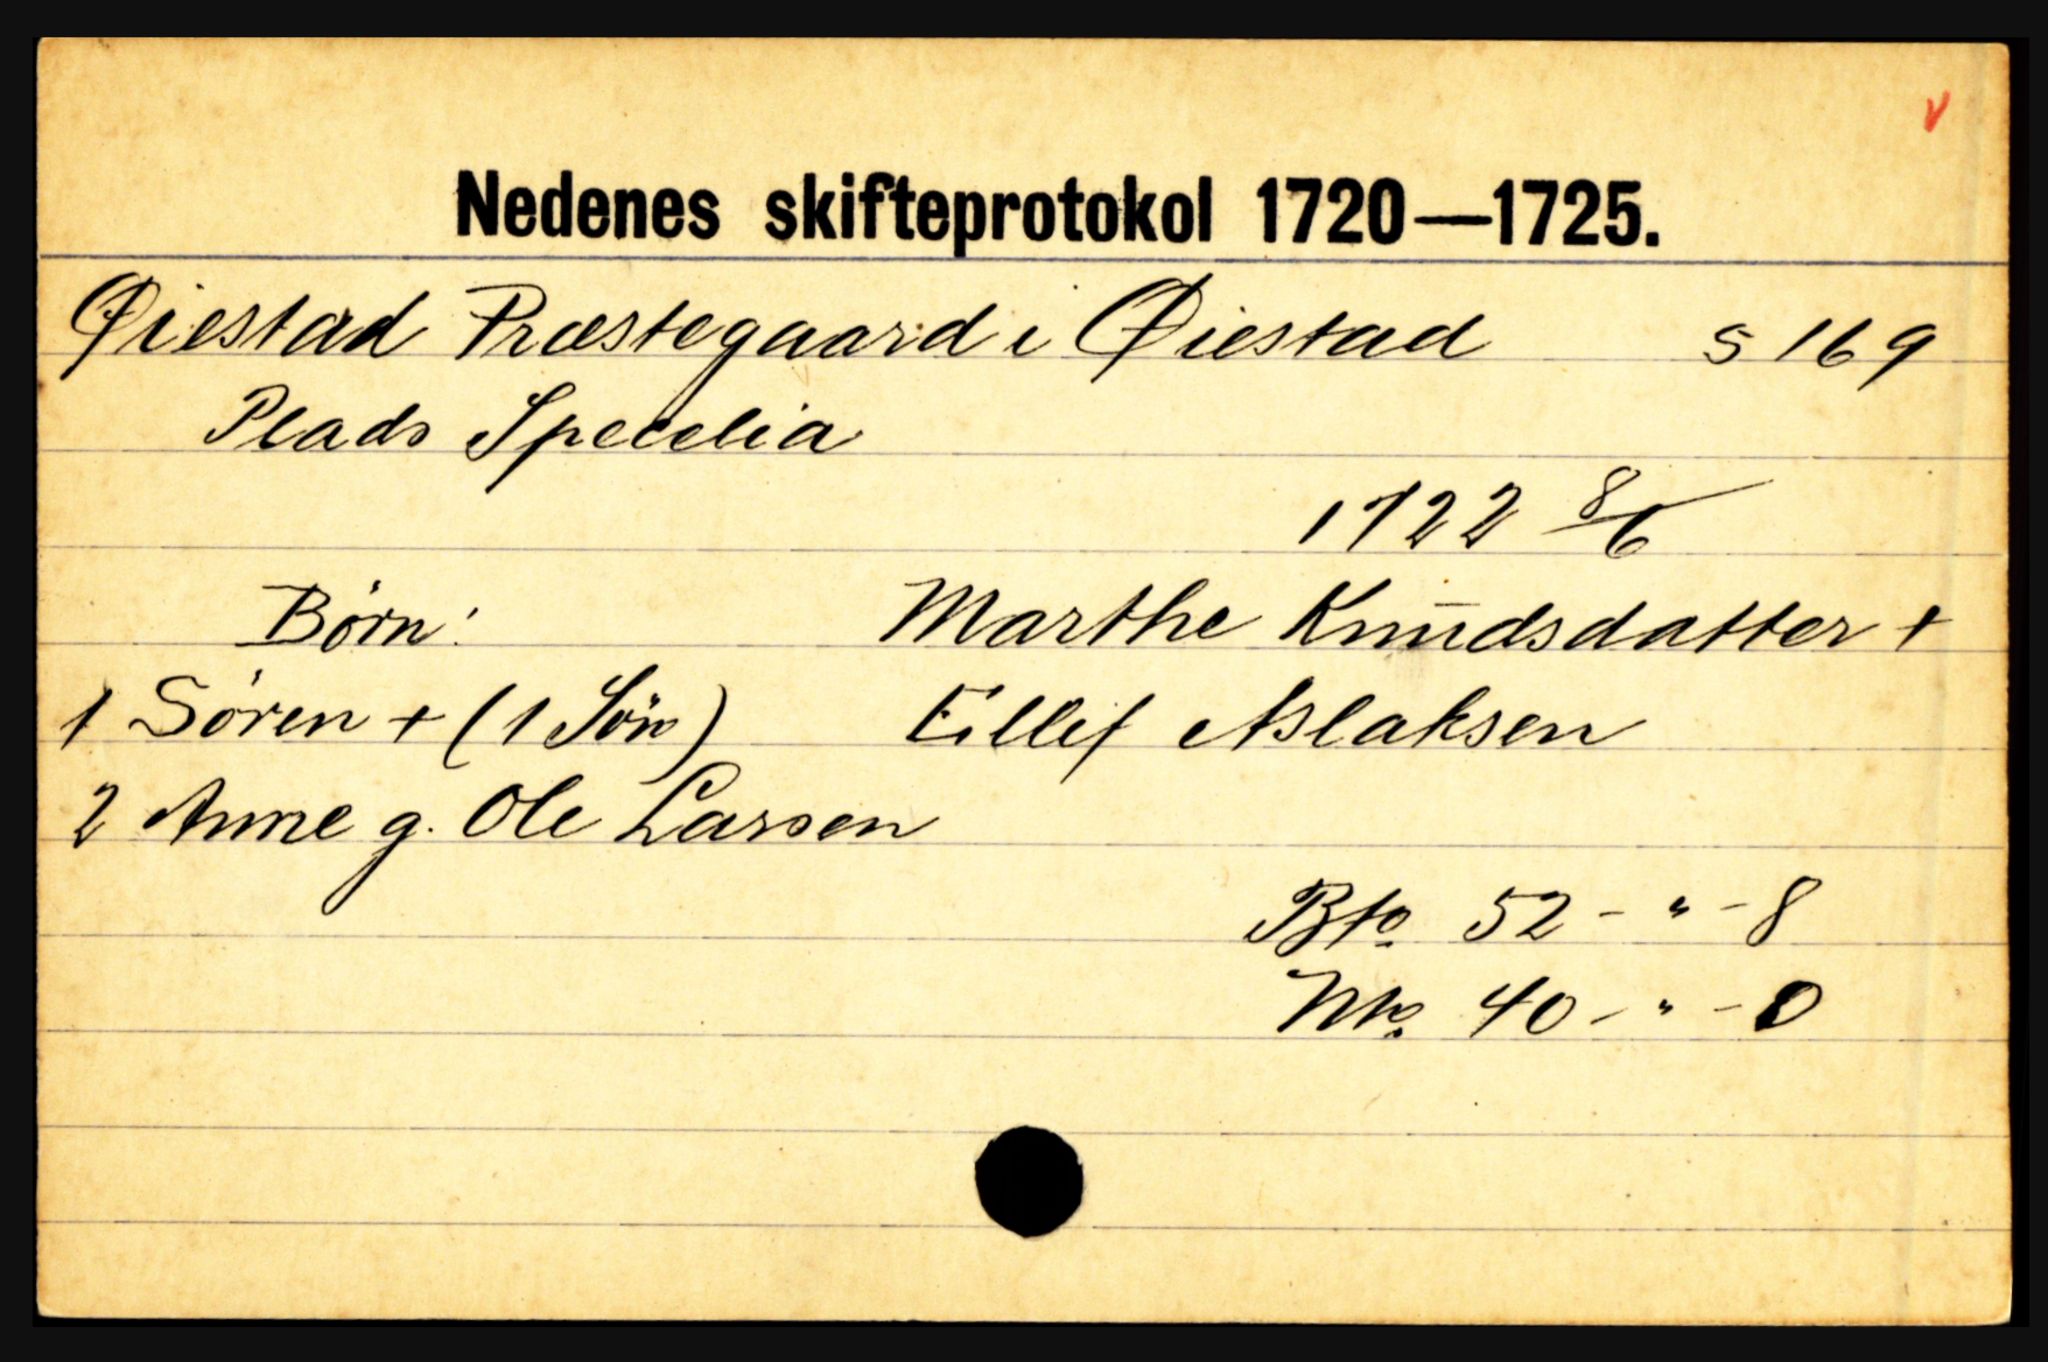 Nedenes skifteprotokol 1720—1725.
Øiestad Præstegaard i Øiestad s 169
Plads Specelia
1722 8/6
Børn: Marthe Knudsdatter +
1 Sören + (1 Sön) Eillif Aslaksen
2 Anne g. Ole Larsen
Bto. 52 - " - 8
Nto. 40 - " - 0